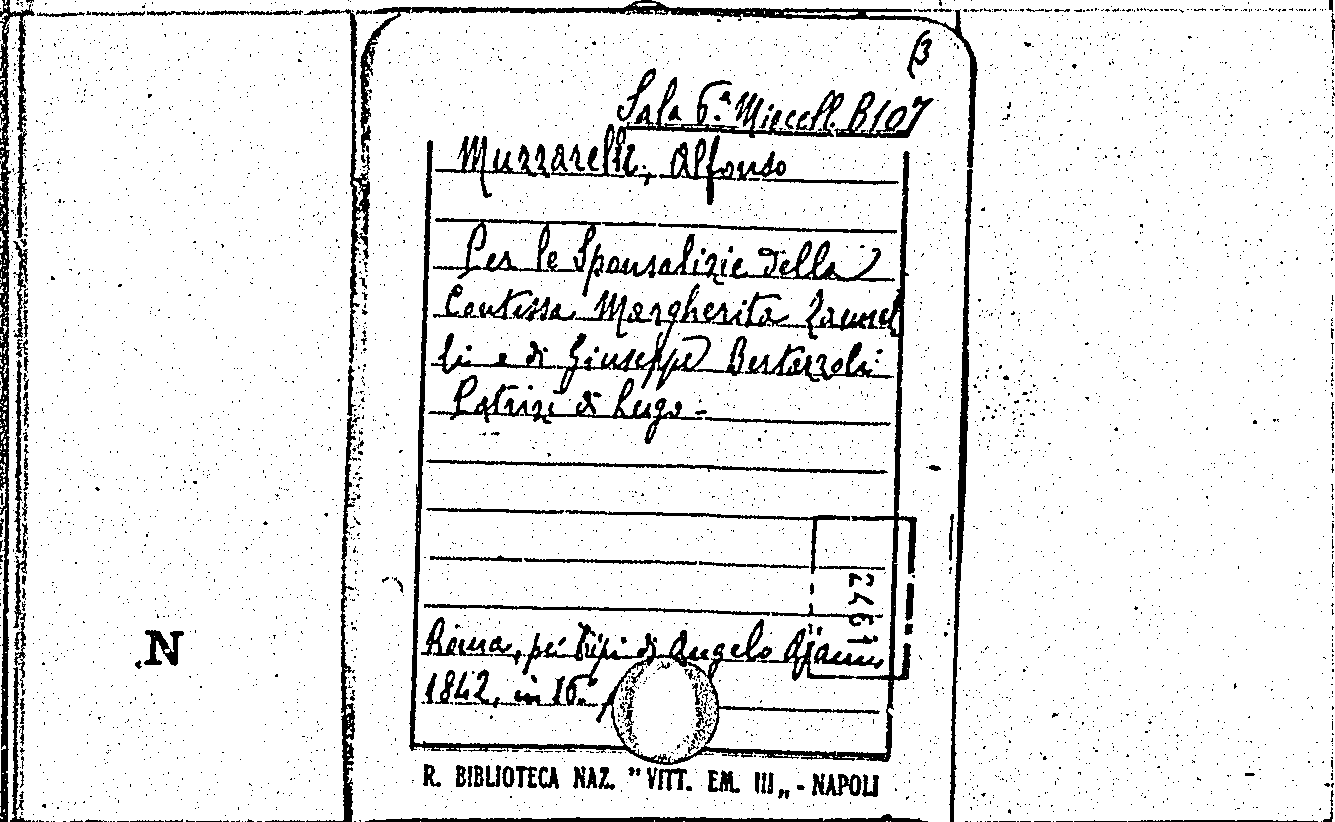 β
Sala 6.ª Miscell. B 107
Muzzarelli, Alfonso
Per le Sponsalizie della
Contessa Margherita Zamel
li e di Giuseppe Bertazzoli
Patrizi di Lugo -
2461
Roma, pei Tipi di Angelo Ajani
1842, in 16.º
N
R. BIBLIOTECA NAZ. "VITT. EM. III„ - NAPOLI